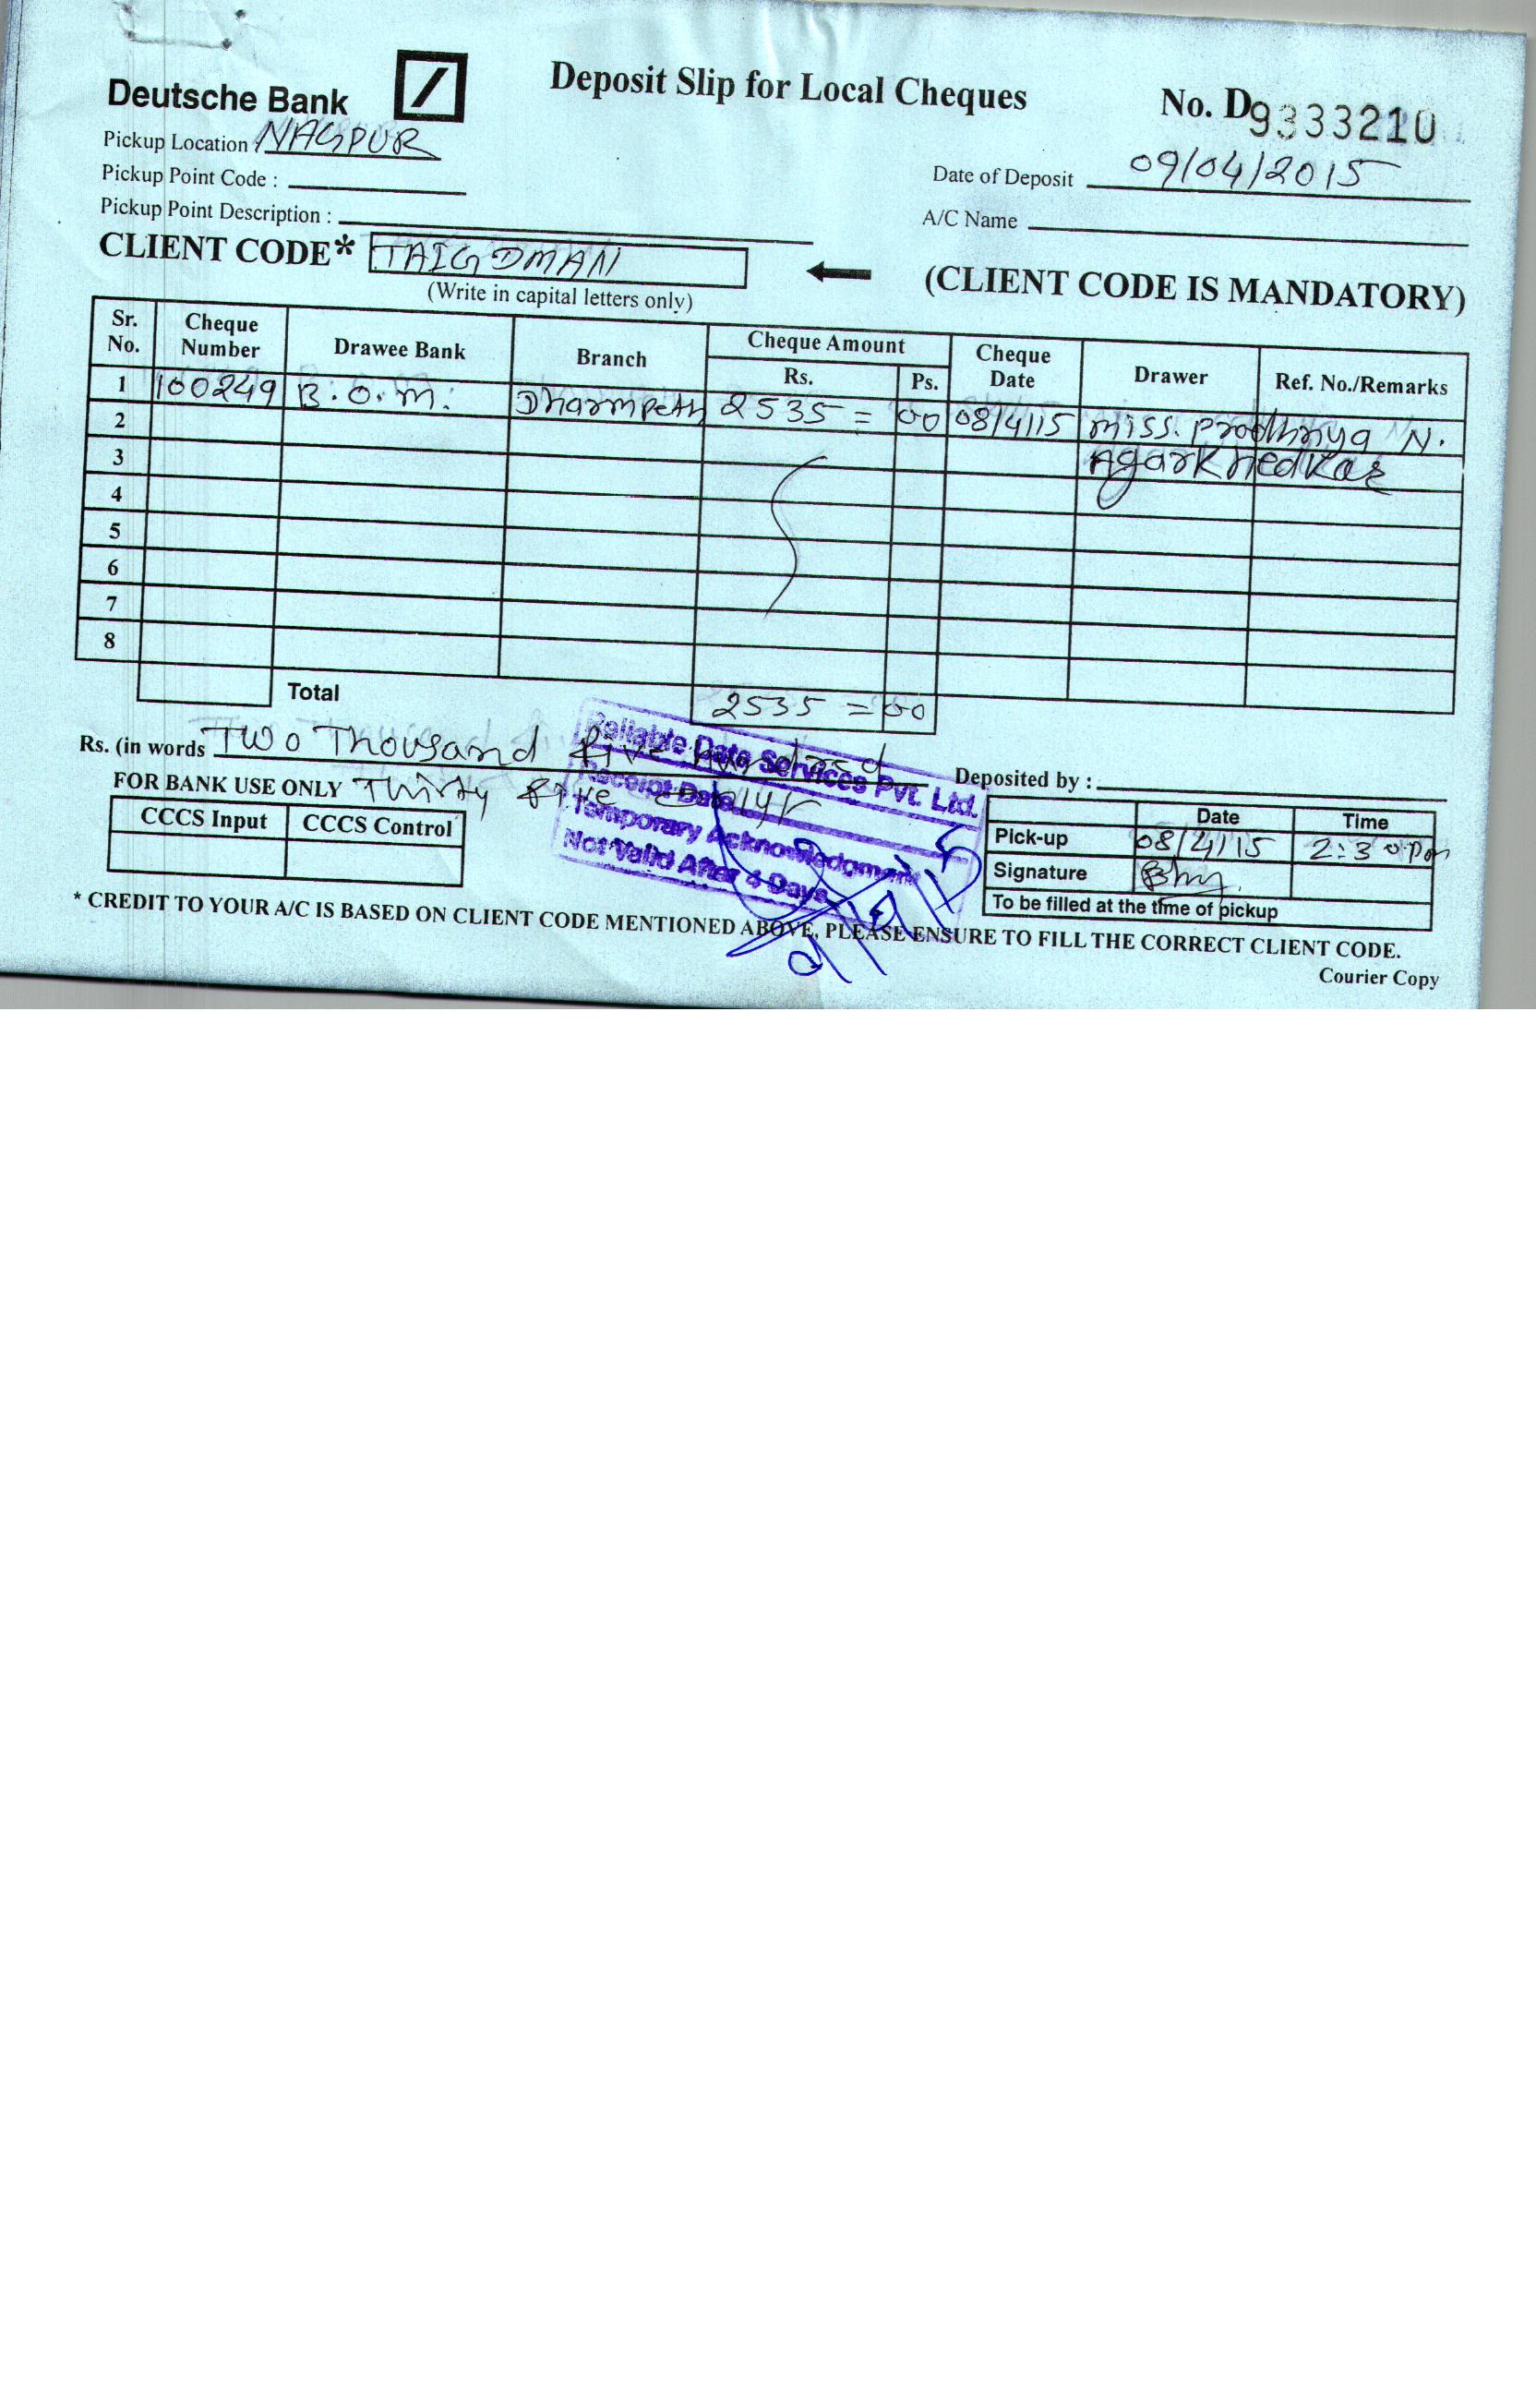 Deutsche Bank
Deposit Slip for Local Cheques
No. D 9333210
Pickup Location NAGPUR
Date of Deposit 09/04/2015
Pickup Point Code :
Pickup Point Description :
A/C Name
CLIENT CODE* TAIGDMAN
(CLIENT CODE IS MANDATORY)
(Write in capital letters only)
Sr. No. Cheque Number Drawee Bank Branch Cheque Amount Rs. Ps. Cheque Date Drawer Ref. No./Remarks
1 100249 B.O.M. Dharmpeth 2535 = 00 08/4/15 Miss. N.
2 Agarkhedkar
3
4
5
6
7
8
Total 2535 = 00
Rs. (in words Two Thousand five hundred
Deposited by :
FOR BANK USE ONLY Thirty five only
CCCS Input CCCS Control
Reliable Data Services Pvt. Ltd.
Receipt Date
Temporary Acknowledgment
Not Valid After 4 Days
Date Time
Pick-up 08/4/15 2:30 Pm
Signature
To be filled at the time of pickup
* CREDIT TO YOUR A/C IS BASED ON CLIENT CODE MENTIONED ABOVE, PLEASE ENSURE TO FILL THE CORRECT CLIENT CODE.
Courier Copy